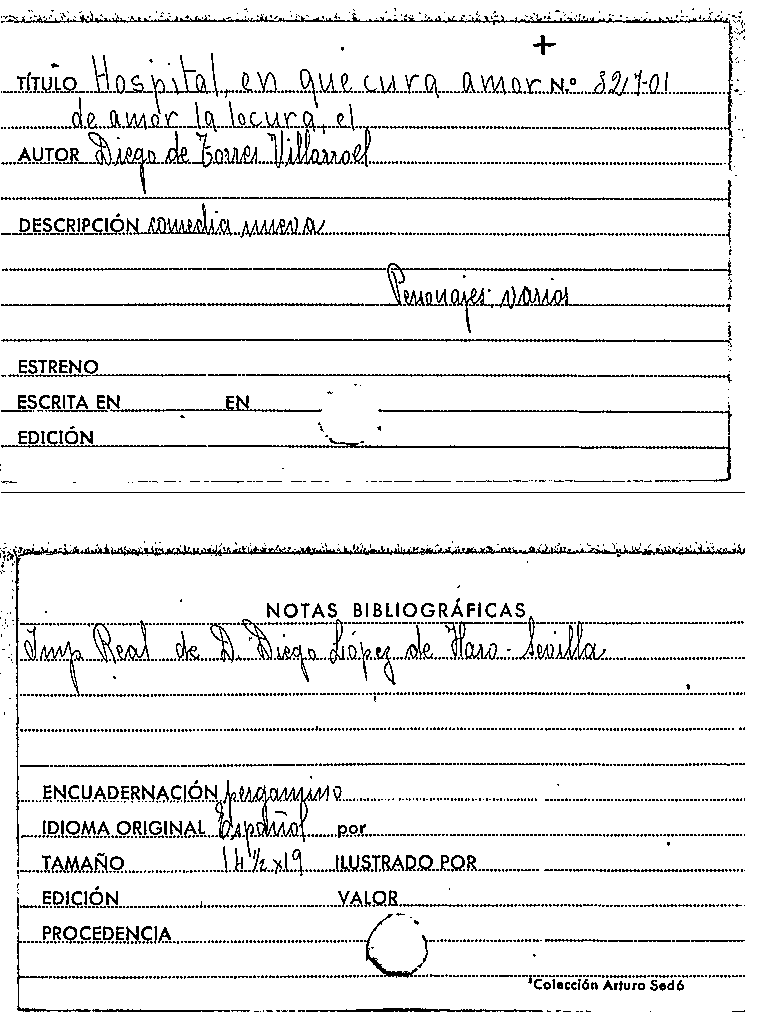 +
TÍTULO Hospital, en que cura amor N.º 3217-01
de amor la locura, el
AUTOR Diego de Torres Villarroel
DESCRIPCIÓN comedia nueva
Personajes: varios
ESTRENO
ESCRITA EN EN
EDICIÓN
NOTAS BIBLIOGRÁFICAS
Imp Real de D. Diego López de Haro - Sevilla
ENCUADERNACIÓN pergamino
IDIOMA ORIGINAL Español por
TAMAÑO 14 ½ x 19 ILUSTRADO POR
EDICIÓN VALOR
PROCEDENCIA
Colección Arturo Sedó